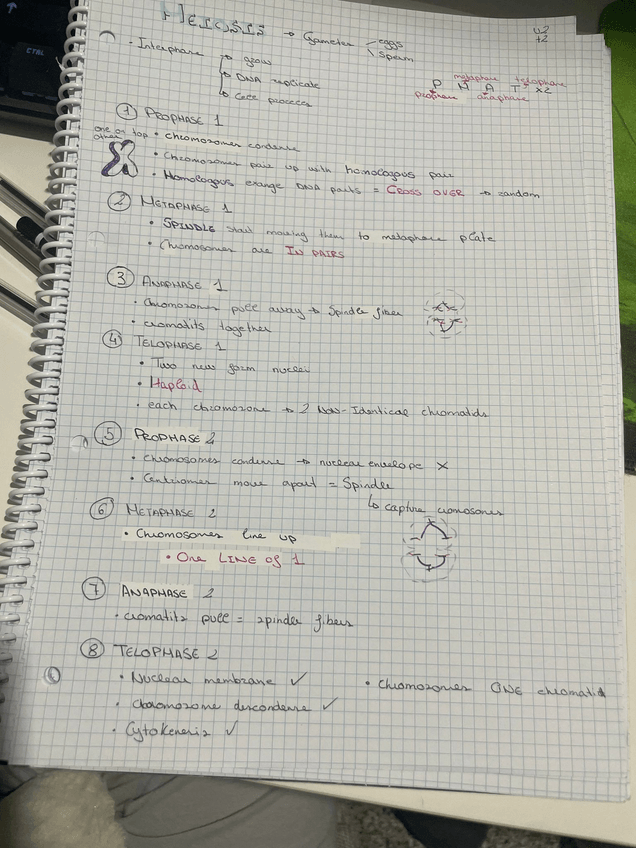 MEIOSIS → Gameter eggs
sperm
• Interphase → grow
→ DNA replicate
→ Cell process
metaphase telophase
P M A T x2
prophase anaphase
① PROPHASE 1
one on top other • chromosomes condense
• Chromosomes pair up with homologous pair
• Homologous exange DNA parts = CROSS OVER → random
② METAPHASE 1
• SPINDLE start moving them to metaphase plate
• Chromosomes are IN PAIRS
③ ANAPHASE 1
• Chromosomes pull away → Spindle fiber
• cromatits together
④ TELOPHASE 1
• Two new form nuclei
• Haploid
• each chromosome → 2 Non-Identical chromatids
⑤ PROPHASE 2
• Chromosomes condense → nuclear envelope X
• Centriomer move apart = Spindle
↳ capture cromosomes
⑥ METAPHASE 2
• Chromosomes line up
• One LINE OF 1
⑦ ANAPHASE 2
• cromatits pull = spinder fibers
⑧ TELOPHASE 2
• Nuclear membrane ✓ • Chromosomes ONE chromatid
• Chromosome descondense ✓
• Cytokenesis ✓
CTRL